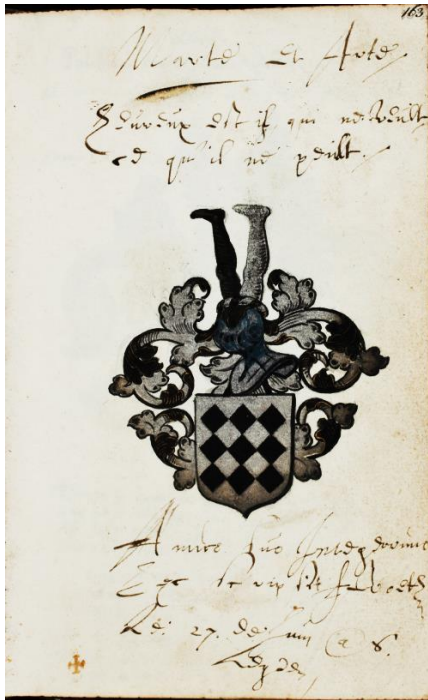 163
Marte et Arte
Heureux est il qui ne veult
ce qu'il ne peult
Amico suo Integerrimo
le 27. de Juin @ 
Leyden